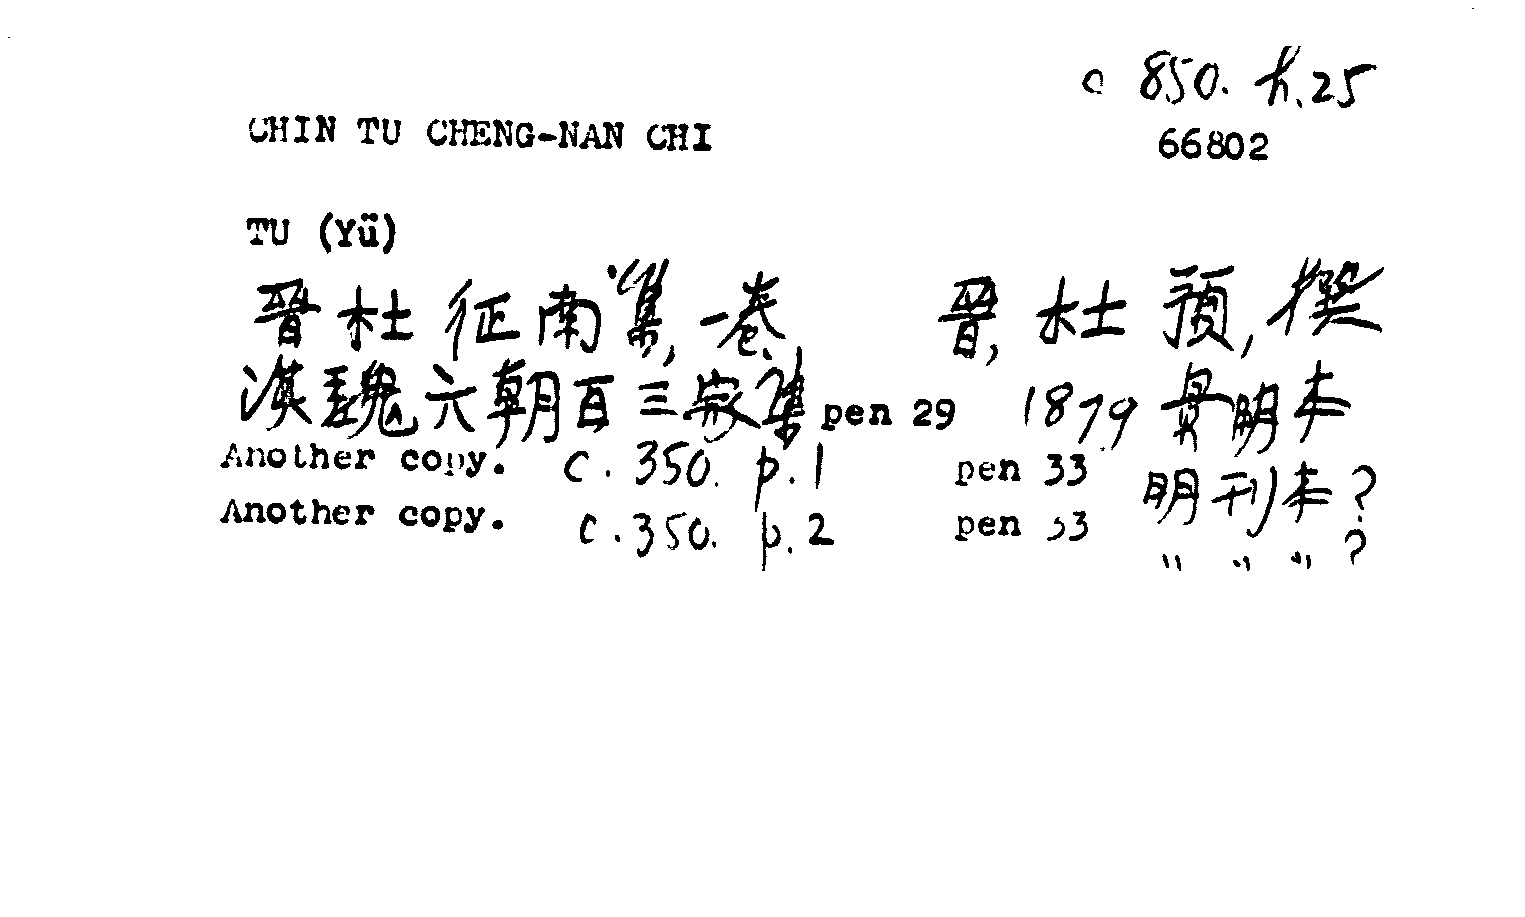 c 850. h.25
CHIN TU CHENG-NAN CHI
66802
TU (Yü)
晉杜征南集, 一卷. 晉, 杜預, 撰
漢魏六朝百三家集 pen 29 1879 景明本
Another copy. c. 350. p.1 pen 33 明刊本?
Another copy. c. 350. p.2 pen 33 " " " ?